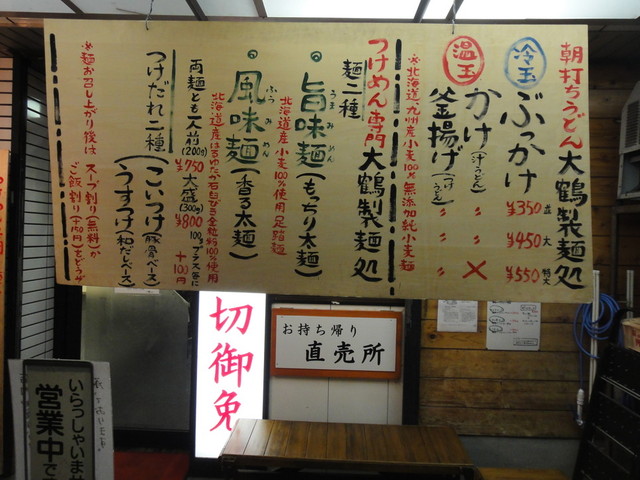 朝打ちうどん 大鶴製麺処
冷玉 ぶっかけ ¥350並 ¥450大 ¥550特大
温玉 かけ(汁うどん) 〃 〃 ×
釜揚げ(つけうどん) 〃 〃 〃
※北海道、九州産小麦100%無添加純小麦麺
つけめん専門 大鶴製麺処
麺二種
旨味麺(もっちり太麺)
うまみめん
北海道産小麦100%使用足踏麺
風味麺(香る太麺)
ふうみめん
北海道産はるゆたか石臼びき全粒粉100%使用
両麺とも一人前(200g)¥750 大盛(300g)¥800
100gプラス各に+100円
つけだれ二種(こいつけ(豚骨ベース)
(うすつけ(和だしベース)
※麺お召し上がり後は スープ割り(無料)か
ご飯割り(+150円)をどうぞ
切御免
お持ち帰り
直売所
いらっしゃいませ
営業中で